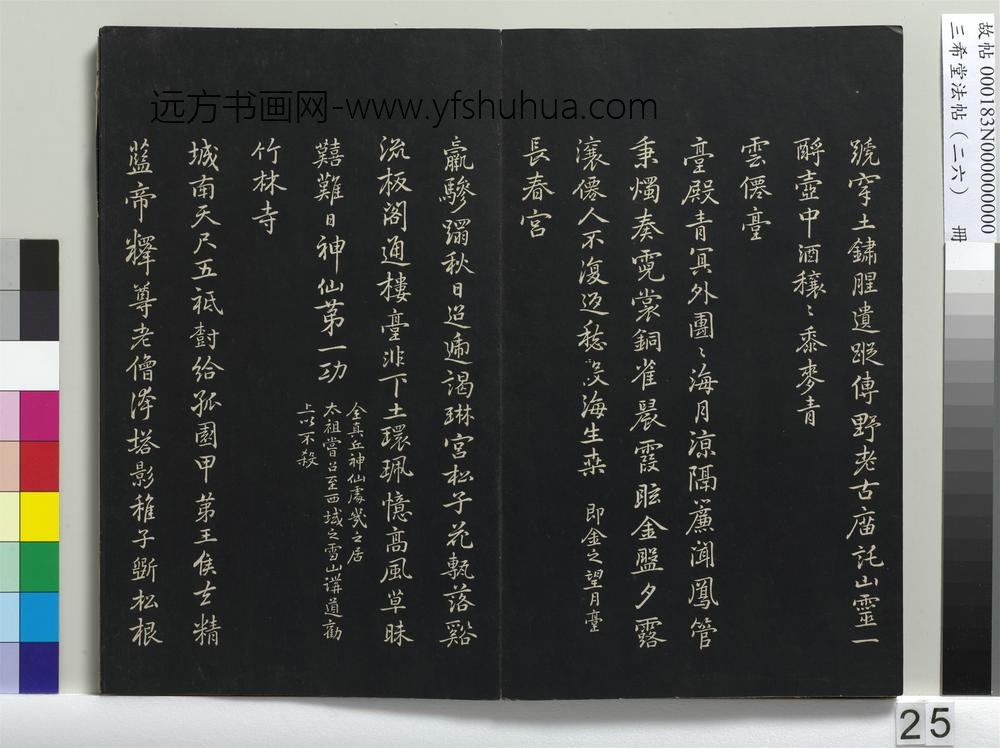 號穿土鏽腥遺蹤傳野老古廟託山靈一
酹壺中酒穰〻黍麥青
雲僊臺
臺殿青冥外團〻海月涼隔簾聞鳳管
秉燭奏霓裳銅雀晨霞眩金盤夕露
瀼僊人不復返愁沒海生桒 即金之望月臺
長春宮
羸驂躡秋日迢遞謁琳宮松子花甎落谿
流板閣通樓臺非下土環珮憶高風草昧
艱難日神仙苐一功
全真丘神仙處幾之居
太祖嘗召至西域之雪山講道勸
上以不殺
竹林寺
城南天尺五祗樹給孤園甲苐王侯去精
藍帝釋尊老僧淨塔影稚子斲松根
远方书画网-www.yfshuhua.com
故帖 000183N000000000
三希堂法帖(二六) 冊
25